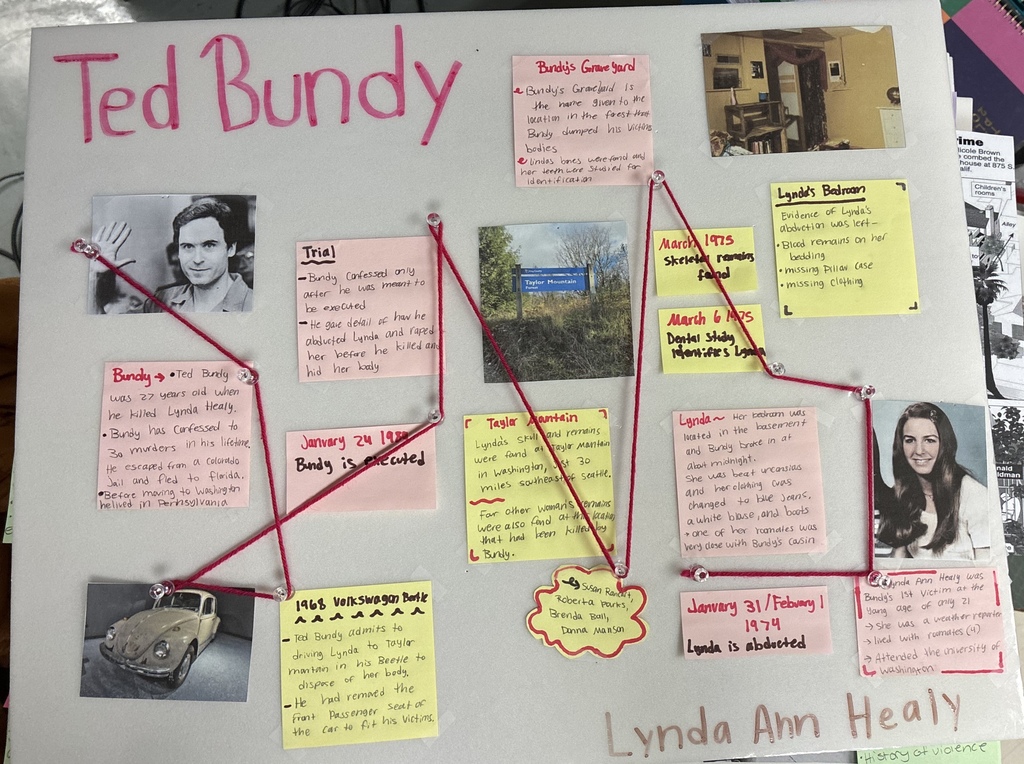 Ted Bundy
Bundy's Graveyard
Bundy's Graveyaid is
the name given to the
location in the forest that
Bundy dumped his victims
bodies
lindas bones were found and
her teeth were studied for
identification
Lynda's Bedroom
Evidence of Lynda's
abduction was left-
• Blood remains on her
bedding
• missing Pillow case
• missing clothing
Trial
- Bundy Confessed only
after he was meant to
be executed
- He gave detail of how he
abducted Lynda and raped
her before he killed and
hid her body
Taylor Mountain
Forest
March 1975
Skeletal remains
found
March 6 1975
Dental Study
Identifies Lynda
Bundy → • Ted Bundy
was 27 years old when
he killed Lynda Healy.
• Bundy has confessed to
30 murders in his lifetime.
He escaped from a Colorado
Jail and fled to Florida.
• Before moving to Washington
he lived in Pennsylvania
January 24
Bundy is executed
Taylor Mantain
Lynda's skull and remains
were found at Taylor Mantain
in Washington, just 30
miles southeast of seattle.
Four other woman's remains
were also fond at this location
that had been killed by
Bundy.
Susan
Roberta Parks,
Brenda Ball,
Donna Manson
Lynda ~ Her bedroom was
located in the basement
and Bundy broke in at
about midnight.
She was beat
and her clothing was
changed to blue jeans,
a white blouse, and boots
• one of her roomates was
very close with Bundy's cousin
January 31 / Febuary 1
1974
Lynda is abducted
Lynda Ann Healy was
Bundy's 1st victim at the
Yang age of only 21
→ She was a weather reporter
→ lived with roomates (4)
→ Attended the university of
Washington
1968 Volkswagen Beetle
- Ted Bundy admits to
driving Lynda to Taylor
montain in his Beetle to
dispose of her body.
- He had removed the
Front Passenger Seat of
the car to fit his victims.
Lynda Ann Healy
• History of violence
icole Brown
combed the
house at 875 S.
Children's
rooms
Alley